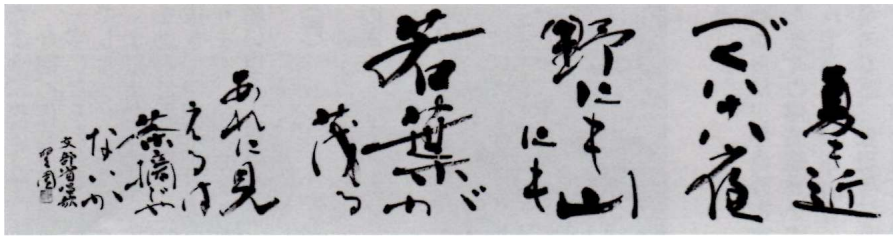 夏も近
づく八十八夜
野にも山
にも
若葉が
茂る
あれに見
えるは
茶摘ぢや
ないか
文部省唱歌